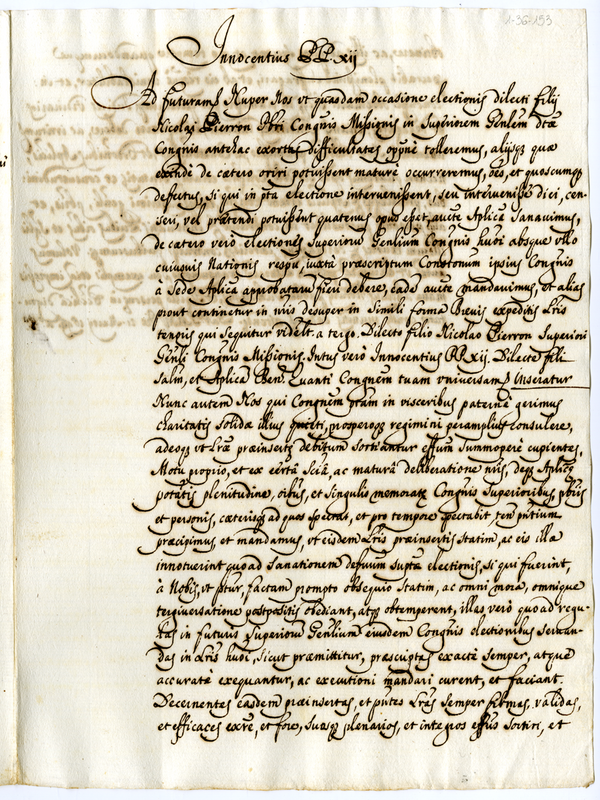 1-36-153
Innocentius PP. xij
Ad futuram Nuper Nos ut quasdam occasione electionis dilecti filij
Nicolai Pierron Pbri Congnis Missionis in Superiorem Gnlem dtæ
Congnis antehac exortas difficultates oppnè tolleremus, alijsq quæ
exindè de cætero oriri potuissent maturè occurreremus, oēs, et quoscumq
defectus, si qui in ptã electione intervenissent, seu intervenisse dici, cen-
seri, vel prætendi potuissent quatenus opus esset, auctte Aplicã sanavimus,
de cætero verò electiones Superioru Gnlium Congnis hmõi absque ullo
cuiusuis Nationis respũ, iuxta præscriptum Constonum ipsius Congnis
à Sede Aplicã approbataru fieri debere, eadẽ auctte mandavimus, et aliàs
prout continetur in nris desuper in simili forma Brevis expeditis Lris
tenoris qui sequitur videlt. a tergo. Dilecto filio Nicolao Pierron Superiori
Gnli Congnis Missionis. Intus verò Innocentius PP. xij. Dilecte fili
Salm, et Aplicã Ben. Luanti Congnem tuam universam Inseratur
Nunc autem Nos qui Congnem ptam in visceribus paternè gerimus
charitatis solidæ illius quieti, prosperoq regimini peramplius consulere,
adeoq ut Lræ præinsertæ debitum sortiantur effum summoperè cupientes,
Motu proprio, et ex certã sciã, ac maturã deliberatione nris, deq Aplicæ
potatis plenitudine, oibus, et singulis memoratæ Congnis Superioribus pbris
et personis, cæterisq ad quos spectat, et pro tempore spectabit ten pntium
præcipimus, et mandamus, ut eisdem Lris præinsertis statim, ac eis illa
innotuerint quoad sanationem defuum suptæ electionis, si qui fuerint,
à Nobis, ut ptur, factam prompto obsequio statim, ac omni morã, omnique
tergiversatione postpositis obediant, atq obtemperent, illas verò quoad regu-
las in futuris Superioru Gnlium eiusdem Congnis electionibus servan-
das in Lris hmõi, sicut præmittitur, præscriptas exactè semper, atque
accuratè exequantur, ac executioni mandari curent, et faciant.
Decernentes easdem præinsertas, et pntes Lras semper firmas, validas,
et efficaces exre, et fore, suosq plenarios, et integros effus sortiri, et